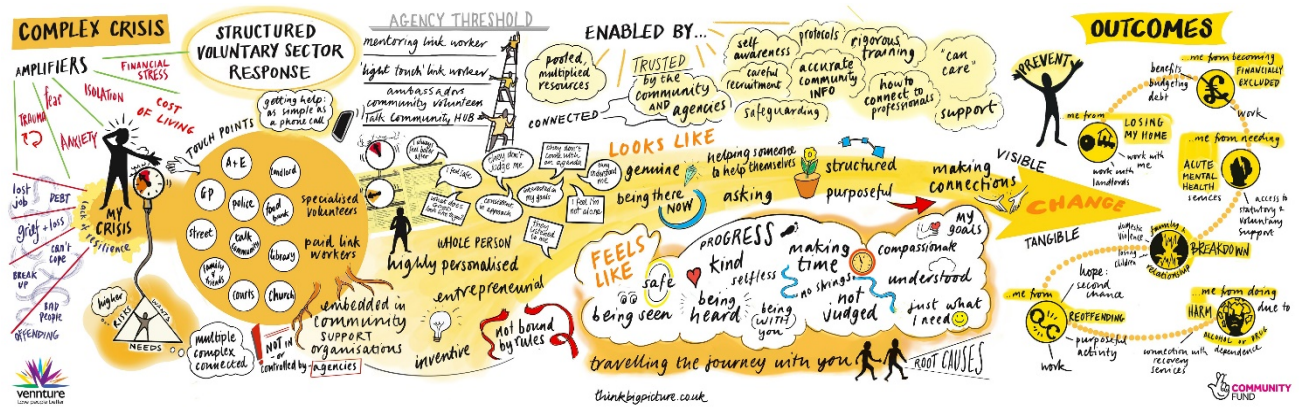 COMPLEX CRISIS
AMPLIFIERS
FINANCIAL
STRESS
fear
ISOLATION
TRAUMA
ANXIETY
COST
OF LIVING
lost
job
DEBT
grief + loss
can't
cope
BREAK
UP
BAD
PEOPLE
OFFENDING
MY
CRISIS
lack of resilience
higher
RISKS
WANTS
NEEDS
multiple
complex
connected
vennture
STRUCTURED
VOLUNTARY SECTOR
RESPONSE
getting help:
as simple as
a phone call
TOUCH POINTS
A+E
landlord
GP
police
food
bank
street
talk
community
library
family &
friends
courts
church
specialised
volunteers
paid link
workers
embedded in
community
SUPPORT
organisations
NOT IN
- or -
controlled by
agencies
AGENCY THRESHOLD
mentoring link worker
'light touch' link worker
ambassadors
community volunteers
Talk Community HUB
I always
feel better
after
I feel safe
they don't
judge me
they don't
come with
an agenda
they
understand
me
what does
good
look like to you?
consistent
in approach
interested in
my goals
I feel I'm
not alone
they
listened
to me
WHOLE PERSON
highly personalised
entrepreneurial
inventive
not bound
by rules
ENABLED BY...
pooled,
multiplied
resources
CONNECTED
TRUSTED
by the
community
AND
agencies
self
awareness
protocols
rigorous
training
careful
recruitment
accurate
community
INFO
how to
connect to
professionals
safeguarding
"can
care"
support
LOOKS LIKE
genuine
helping someone
to help themselves
structured
being there
NOW
asking
purposeful
making
connections
FEELS
LIKE
safe
being seen
PROGRESS
kind
selfless
being
heard
being
WITH
you
making
time
no strings
not
judged
my
goals
compassionate
understood
just what
I need
travelling the journey with you
ROOT CAUSES
thinkbigpicture.co.uk
VISIBLE
CHANGE
TANGIBLE
OUTCOMES
PREVENT
...me from becoming
FINANCIALLY
EXCLUDED
benefits
budgeting
debt
work
me from
LOSING
MY HOME
work with
me
work with
landlords
...me from needing
ACUTE
MENTAL
HEALTH
services
access to
statutory &
voluntary
support
domestic
violence
losing
children
family &
relationship
BREAKDOWN
hope:
second
chance
...me from
REOFFENDING
purposeful
activity
work
...me from doing
HARM
due to
ALCOHOL OR DRUG
dependence
connection with
recovery
services
COMMUNITY
FUND